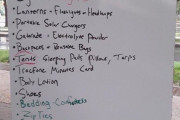 • Lanterns • Flashlights + Headlamps
• Portable Solar Chargers
• Gatorade • Electrolyte Powder
• Dumpsters + Garbage Bags
• Tents, Sleeping Pads, Pillows, Tarps
• Tracfone Minutes Card
• Body Lotion
• Shoes
• Bedding Comforters
• Zip Ties